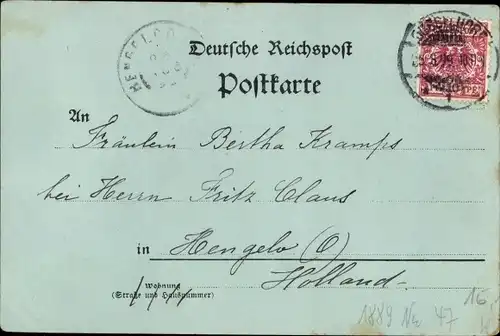 HENGELO
Deutsche Reichspost
Postkarte
An
Fräulein Bertha Kramps
bei Herrn Fritz Claus
in Hengelo (O)
Holland.
Wohnung
(Straße und Hausnummer)
16
1889 No 47